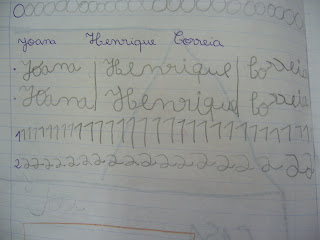 Joana Henrique Correia
. Joana Henrique Correia
. Joana Henrique Correia
1111111111111111111111111111111
2222222222222222222222